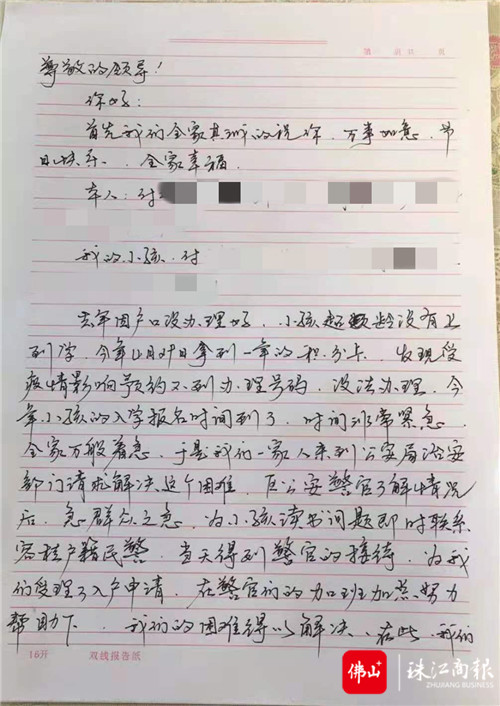 第 页 共 页
尊敬的领导！
你好：
首先我们全家真诚的祝你，万事如意，节
日快乐、全家幸福。
本人：付
我的小孩：付
去年因户口没办理好，小孩超龄没有上
到学，今年4月27日拿到一年的积分卡，发现受
疫情影响预约不到办理号码，没法办理，今
年小孩的入学报名时间到了，时间非常紧急，
全家万般着急，于是我们一家人来到公安局治安
部门请求解决这个困难，区公安警官了解情况
后，急群众之急，为小孩读书问题即时联系
容桂户籍民警，当天得到警官的接待，为我
们受理了入户申请，在警官们的加班加点努力
帮助下，我们的困难得以解决，在此，我们
16开 双线报告纸
佛山+
珠江商報
ZHUJIANG BUSINESS